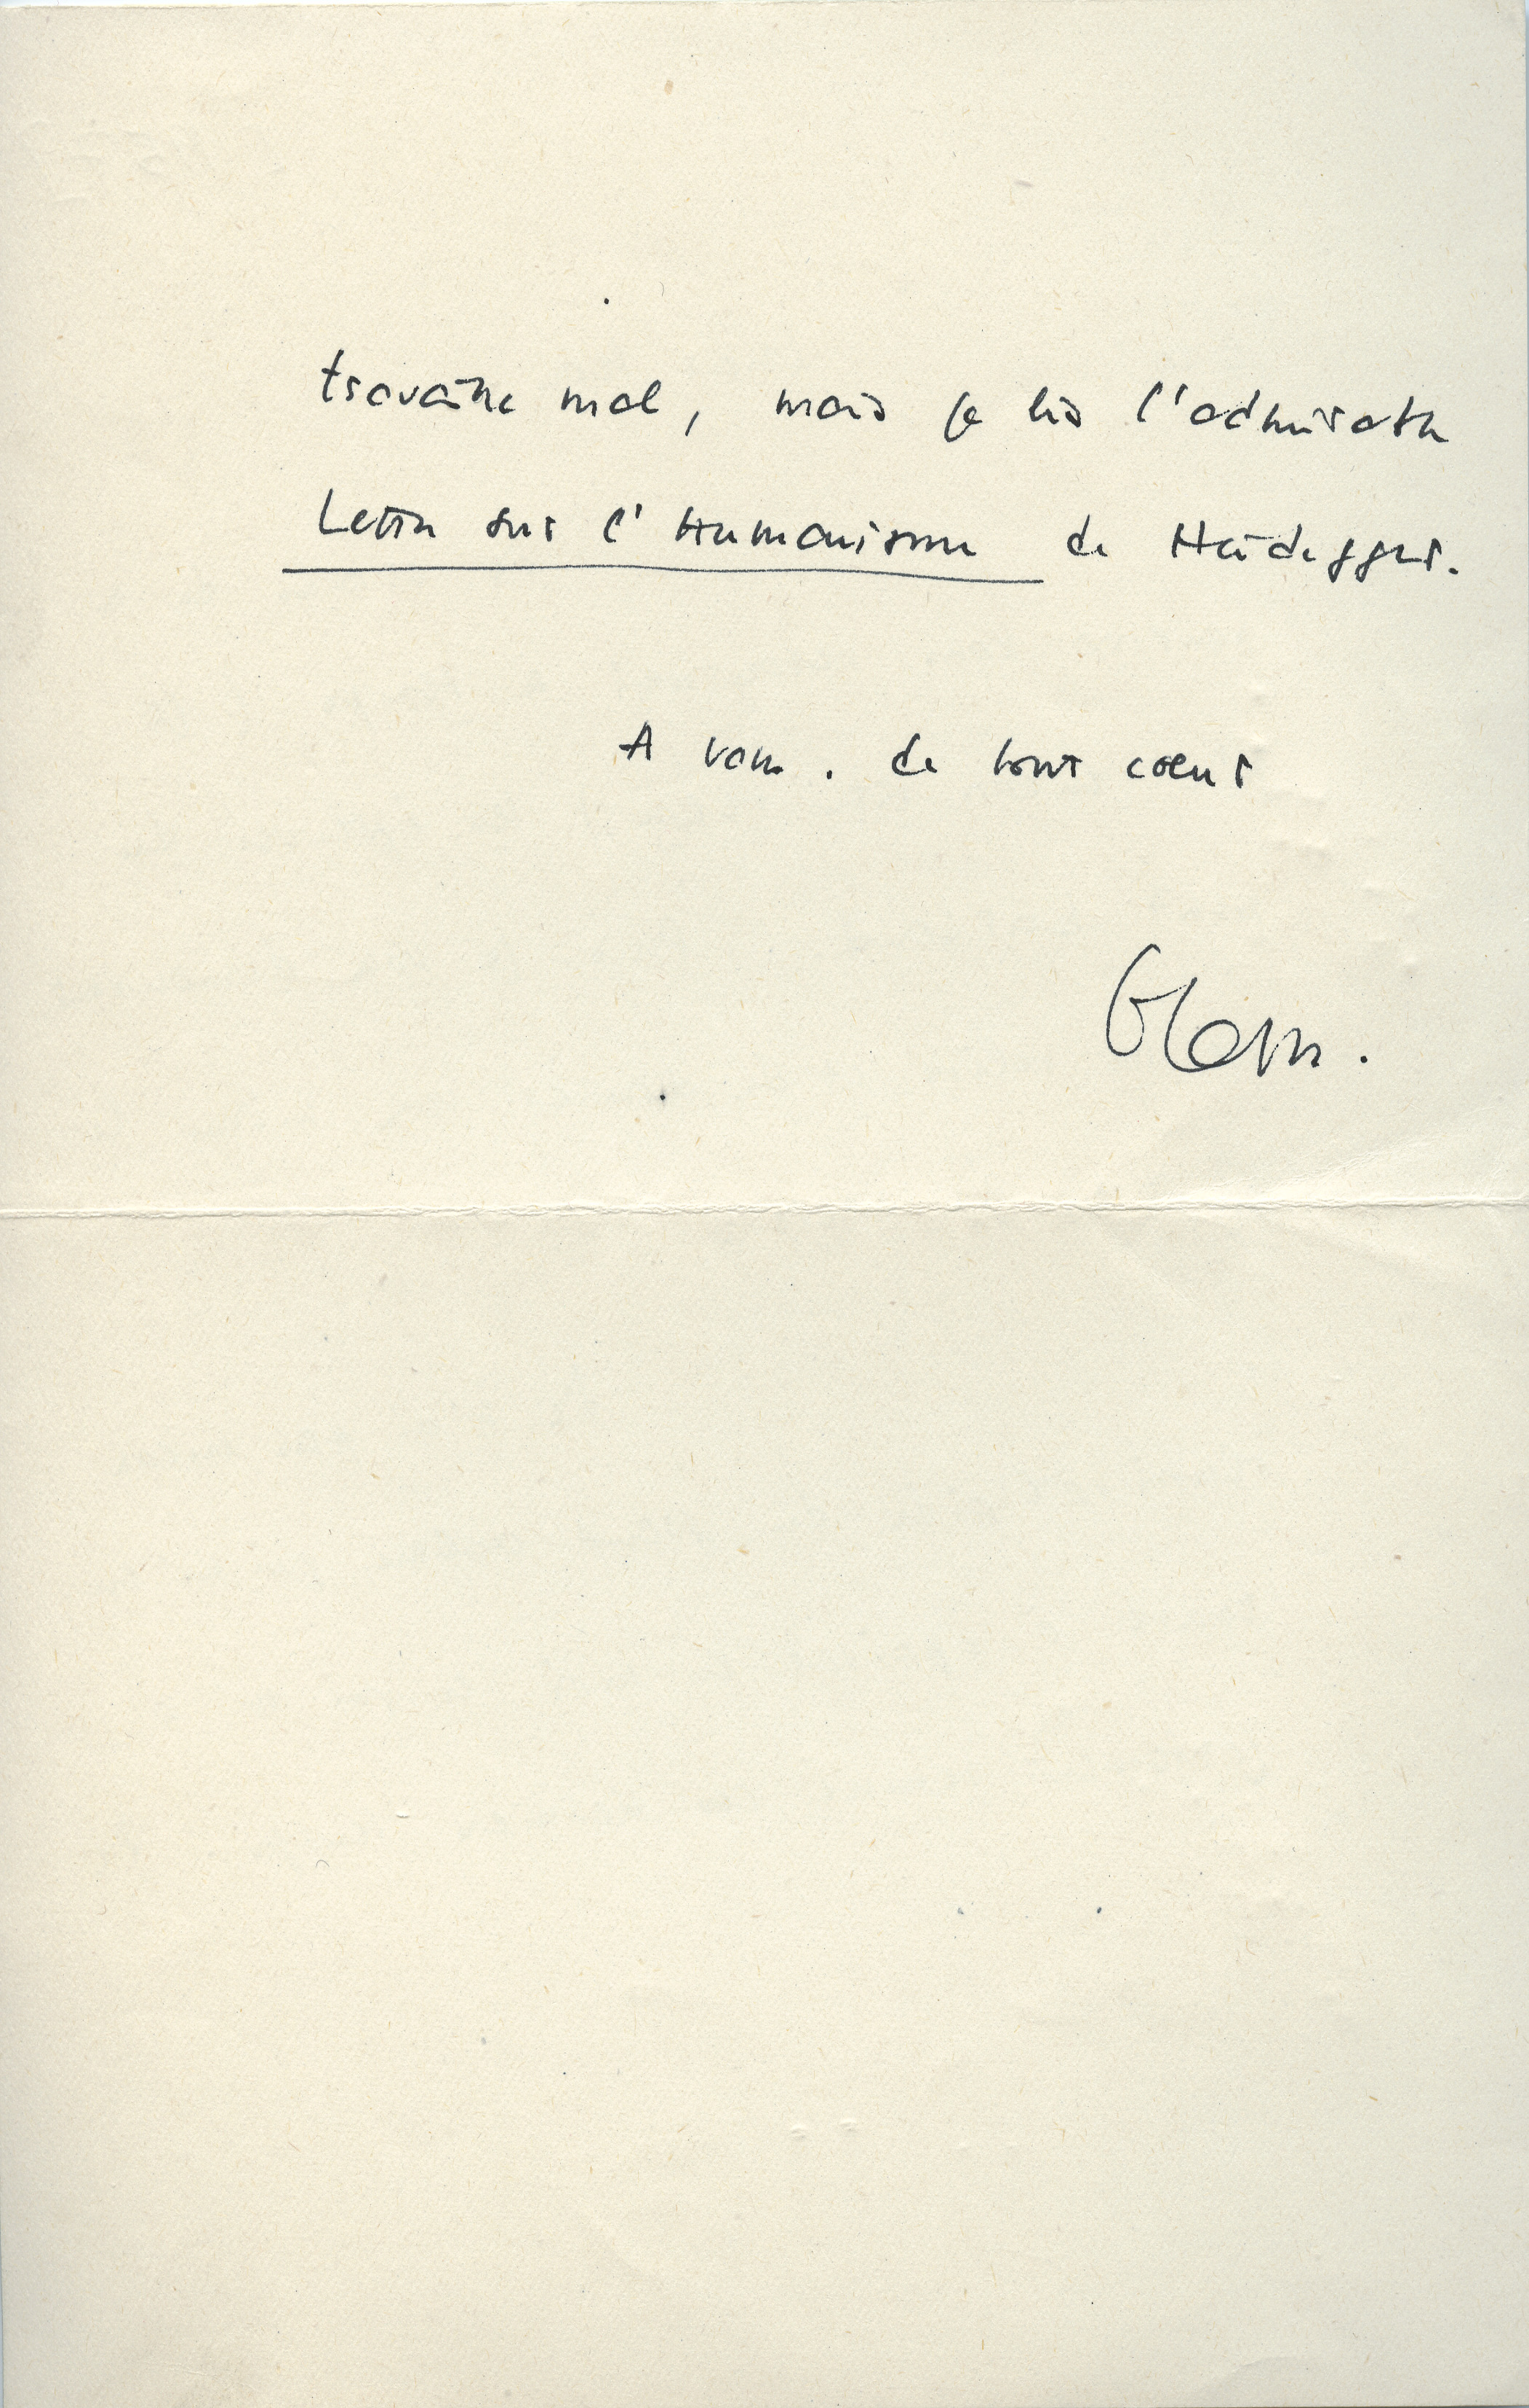 travaille mal, mais je lis l'admirable
Lettre sur l'Humanisme de Heidegger.
A vous. de tout coeur